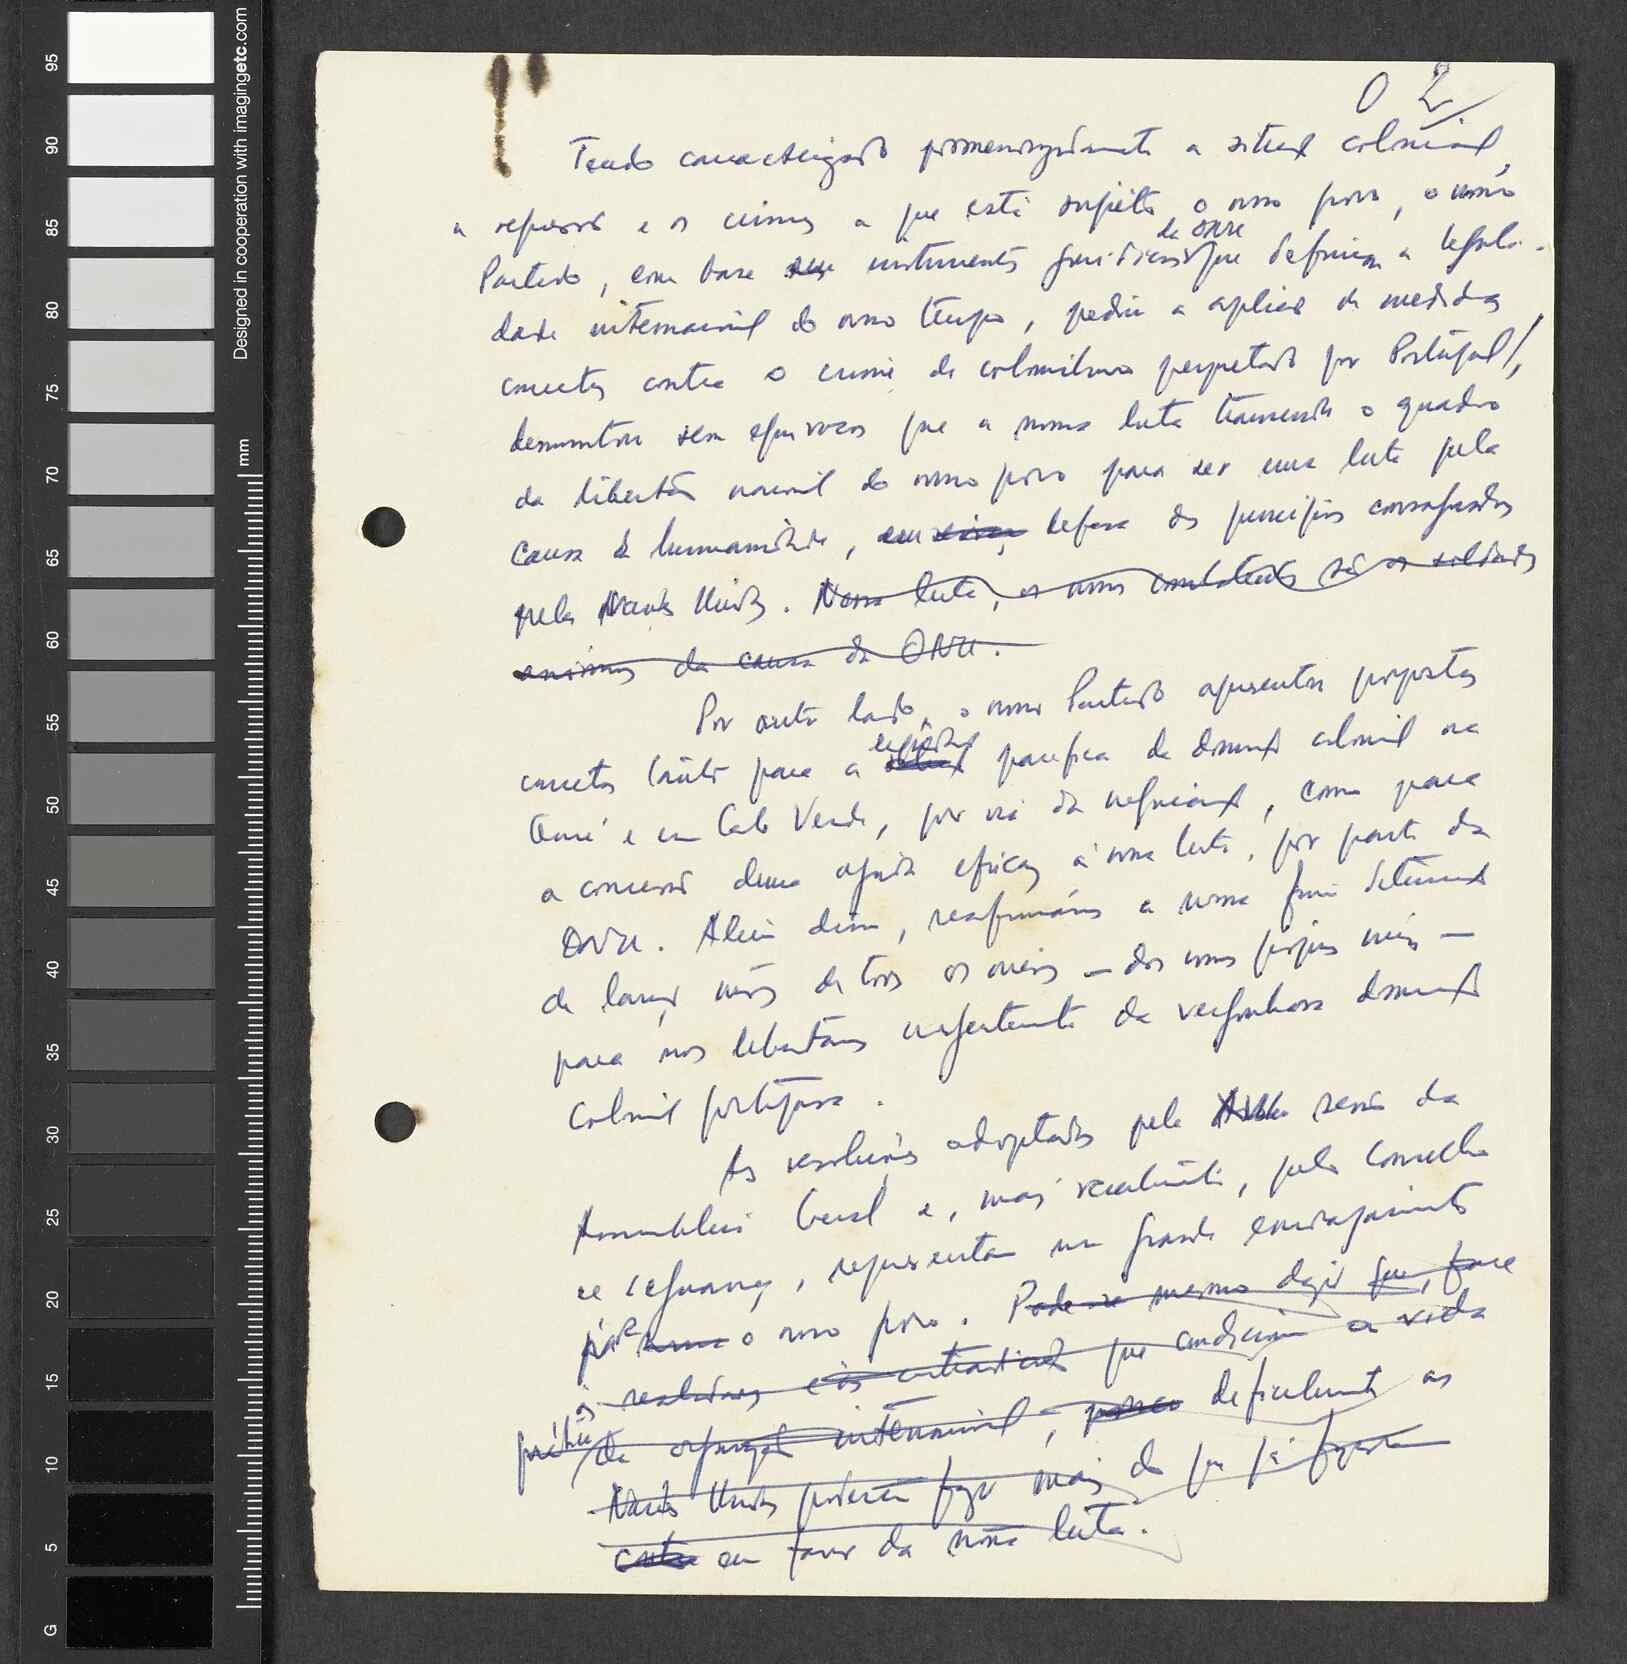 0 2
Tendo caracterizado pormenorizadamente a situação colonial,
a repressão e os crimes a que está sujeito o nosso povo, o nosso
da ONU
Partido, com base nos instrumentos jurídicos que definem a legali-
dade internacional do nosso tempo, pediu a aplicação de medidas
concretas contra o crime de colonialismo perpetrado por Portugal,
demonstrou sem equívocos que a nossa luta transcende o quadro
da libertação nacional do nosso povo para ser uma luta pela
causa da humanidade, em defesa dos princípios consagrados
pelas Nações Unidas. Nessa luta, os nossos combatentes são os soldados
anónimos da causa da ONU.
Por outro lado, o nosso Partido apresentou propostas
liquidação
concretas tanto para a pacífica da dominação colonial na
Guiné e em Cabo Verde, por via da negociação, como para
a concessão duma ajuda eficaz à nossa luta, por parte da
ONU. Além disso, reafirmámos a nossa firme determinação
de lançar mãos de todos os meios — dos nossos próprios meios —
para nos libertarmos urgentemente da vergonhosa dominação
colonial portuguesa.
As resoluções adoptadas pela sessão da
Assembleia Geral e, mais recentemente, pelo Conselho
de Segurança, representam um grande encorajamento
para o nosso povo. Pode-se mesmo dizer que, face
às realidades e às contradições que condicionam a vida
prática da organização internacional, dificilmente as
Nações Unidas poderão fazer mais do que já fizeram
em favor da nossa luta.
Designed in cooperation with imagingetc.com
mm
95
90
85
80
75
70
65
60
55
50
45
40
35
30
25
20
15
10
5
G